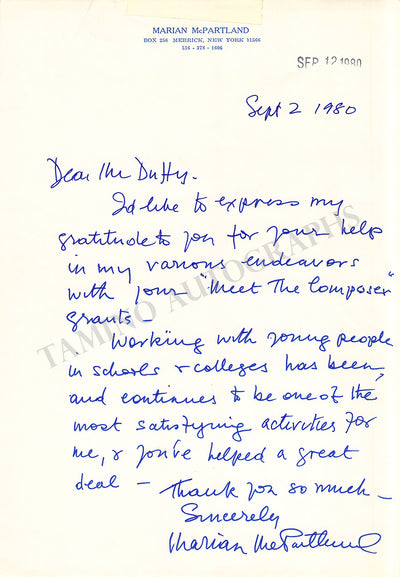 MARIAN McPARTLAND
BOX 254 MERRICK, NEW YORK 11566
516 - 378 - 1606
SEP 12 1980
Sept 2 1980
Dear Mr Duffy -
I'd like to express my
gratitude to you for your help
in my various endeavors
with your "Meet The Composer"
grants -
Working with young people
in schools & colleges has been,
and continues to be one of the
most satisfying activities for
me, & you've helped a great
deal - Thank you so much -
Sincerely
Marian McPartland
TAMINO AUTOGRAPHS